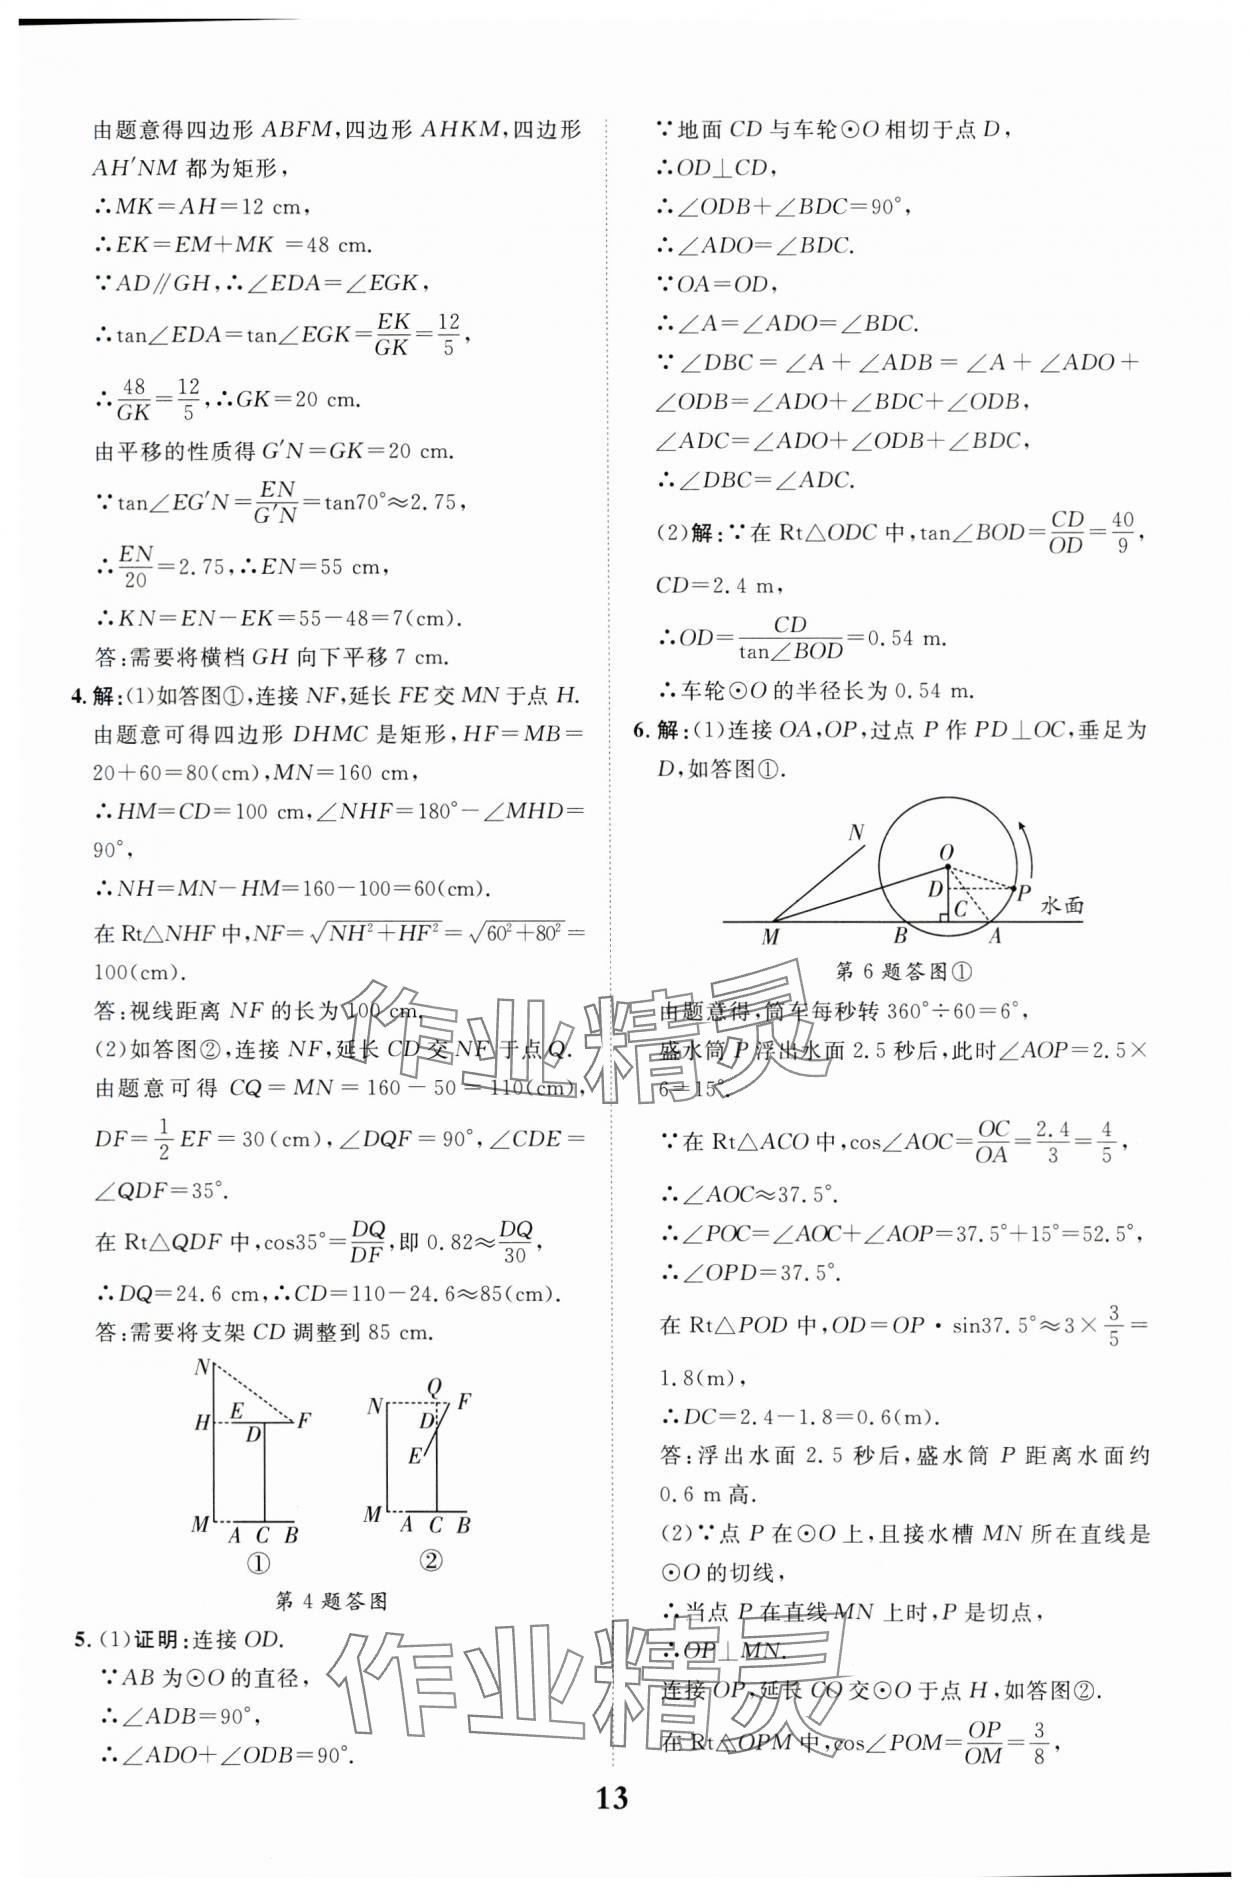 由题意得四边形 ABFM,四边形 AHKM,四边形
AH′NM 都为矩形,
∴MK=AH=12 cm,
∴EK=EM+MK =48 cm.
∵AD∥GH,∴∠EDA=∠EGK,
∴tan∠EDA=tan∠EGK=EK/GK=12/5,
∴48/GK=12/5,∴GK=20 cm.
由平移的性质得 G′N=GK=20 cm.
∵tan∠EG′N=EN/G′N=tan70°≈2.75,
∴EN/20=2.75,∴EN=55 cm,
∴KN=EN-EK=55-48=7(cm).
答:需要将横档 GH 向下平移 7 cm.
4.解:(1)如答图①,连接 NF,延长 FE 交 MN 于点 H.
由题意可得四边形 DHMC 是矩形,HF=MB=
20+60=80(cm),MN=160 cm,
∴HM=CD=100 cm,∠NHF=180°-∠MHD=
90°,
∴NH=MN-HM=160-100=60(cm).
在 Rt△NHF 中,NF=√(NH²+HF²)=√(60²+80²)=
100(cm).
答:视线距离 NF 的长为 100 cm.
(2)如答图②,连接 NF,延长 CD 交 NF 于点 Q.
由题意可得 CQ=MN=160-50=110(cm),
DF=1/2 EF=30(cm),∠DQF=90°,∠CDE=
∠QDF=35°.
在 Rt△QDF 中,cos35°=DQ/DF,即 0.82≈DQ/30,
∴DQ=24.6 cm,∴CD=110-24.6≈85(cm).
答:需要将支架 CD 调整到 85 cm.
N
H E D F
M A C B
①
N Q F
D
E
M A C B
②
第 4 题答图
5.(1)证明:连接 OD.
∵AB 为⊙O 的直径,
∴∠ADB=90°,
∴∠ADO+∠ODB=90°.
∵地面 CD 与车轮⊙O 相切于点 D,
∴OD⊥CD,
∴∠ODB+∠BDC=90°,
∴∠ADO=∠BDC.
∵OA=OD,
∴∠A=∠ADO=∠BDC.
∵∠DBC=∠A+∠ADB=∠A+∠ADO+
∠ODB=∠ADO+∠BDC+∠ODB,
∠ADC=∠ADO+∠ODB+∠BDC,
∴∠DBC=∠ADC.
(2)解:∵在 Rt△ODC 中,tan∠BOD=CD/OD=40/9,
CD=2.4 m,
∴OD=CD/tan∠BOD=0.54 m.
∴车轮⊙O 的半径长为 0.54 m.
6.解:(1)连接 OA,OP,过点 P 作 PD⊥OC,垂足为
D,如答图①.
N
O
D P
C 水面
M B A
第 6 题答图①
由题意得,筒车每秒转 360°÷60=6°,
盛水筒 P 浮出水面 2.5 秒后,此时∠AOP=2.5×
6=15°.
∵在 Rt△ACO 中,cos∠AOC=OC/OA=2.4/3=4/5,
∴∠AOC≈37.5°.
∴∠POC=∠AOC+∠AOP=37.5°+15°=52.5°,
∴∠OPD=37.5°.
在 Rt△POD 中,OD=OP·sin37.5°≈3×3/5=
1.8(m),
∴DC=2.4-1.8=0.6(m).
答:浮出水面 2.5 秒后,盛水筒 P 距离水面约
0.6 m高.
(2)∵点 P 在⊙O 上,且接水槽 MN 所在直线是
⊙O 的切线,
∴当点 P 在直线 MN 上时,P 是切点,
∴OP⊥MN.
连接 OP,延长 CO 交⊙O 于点 H,如答图②.
在 Rt△OPM 中,cos∠POM=OP/OM=3/8,
作业精灵
作业精灵
13